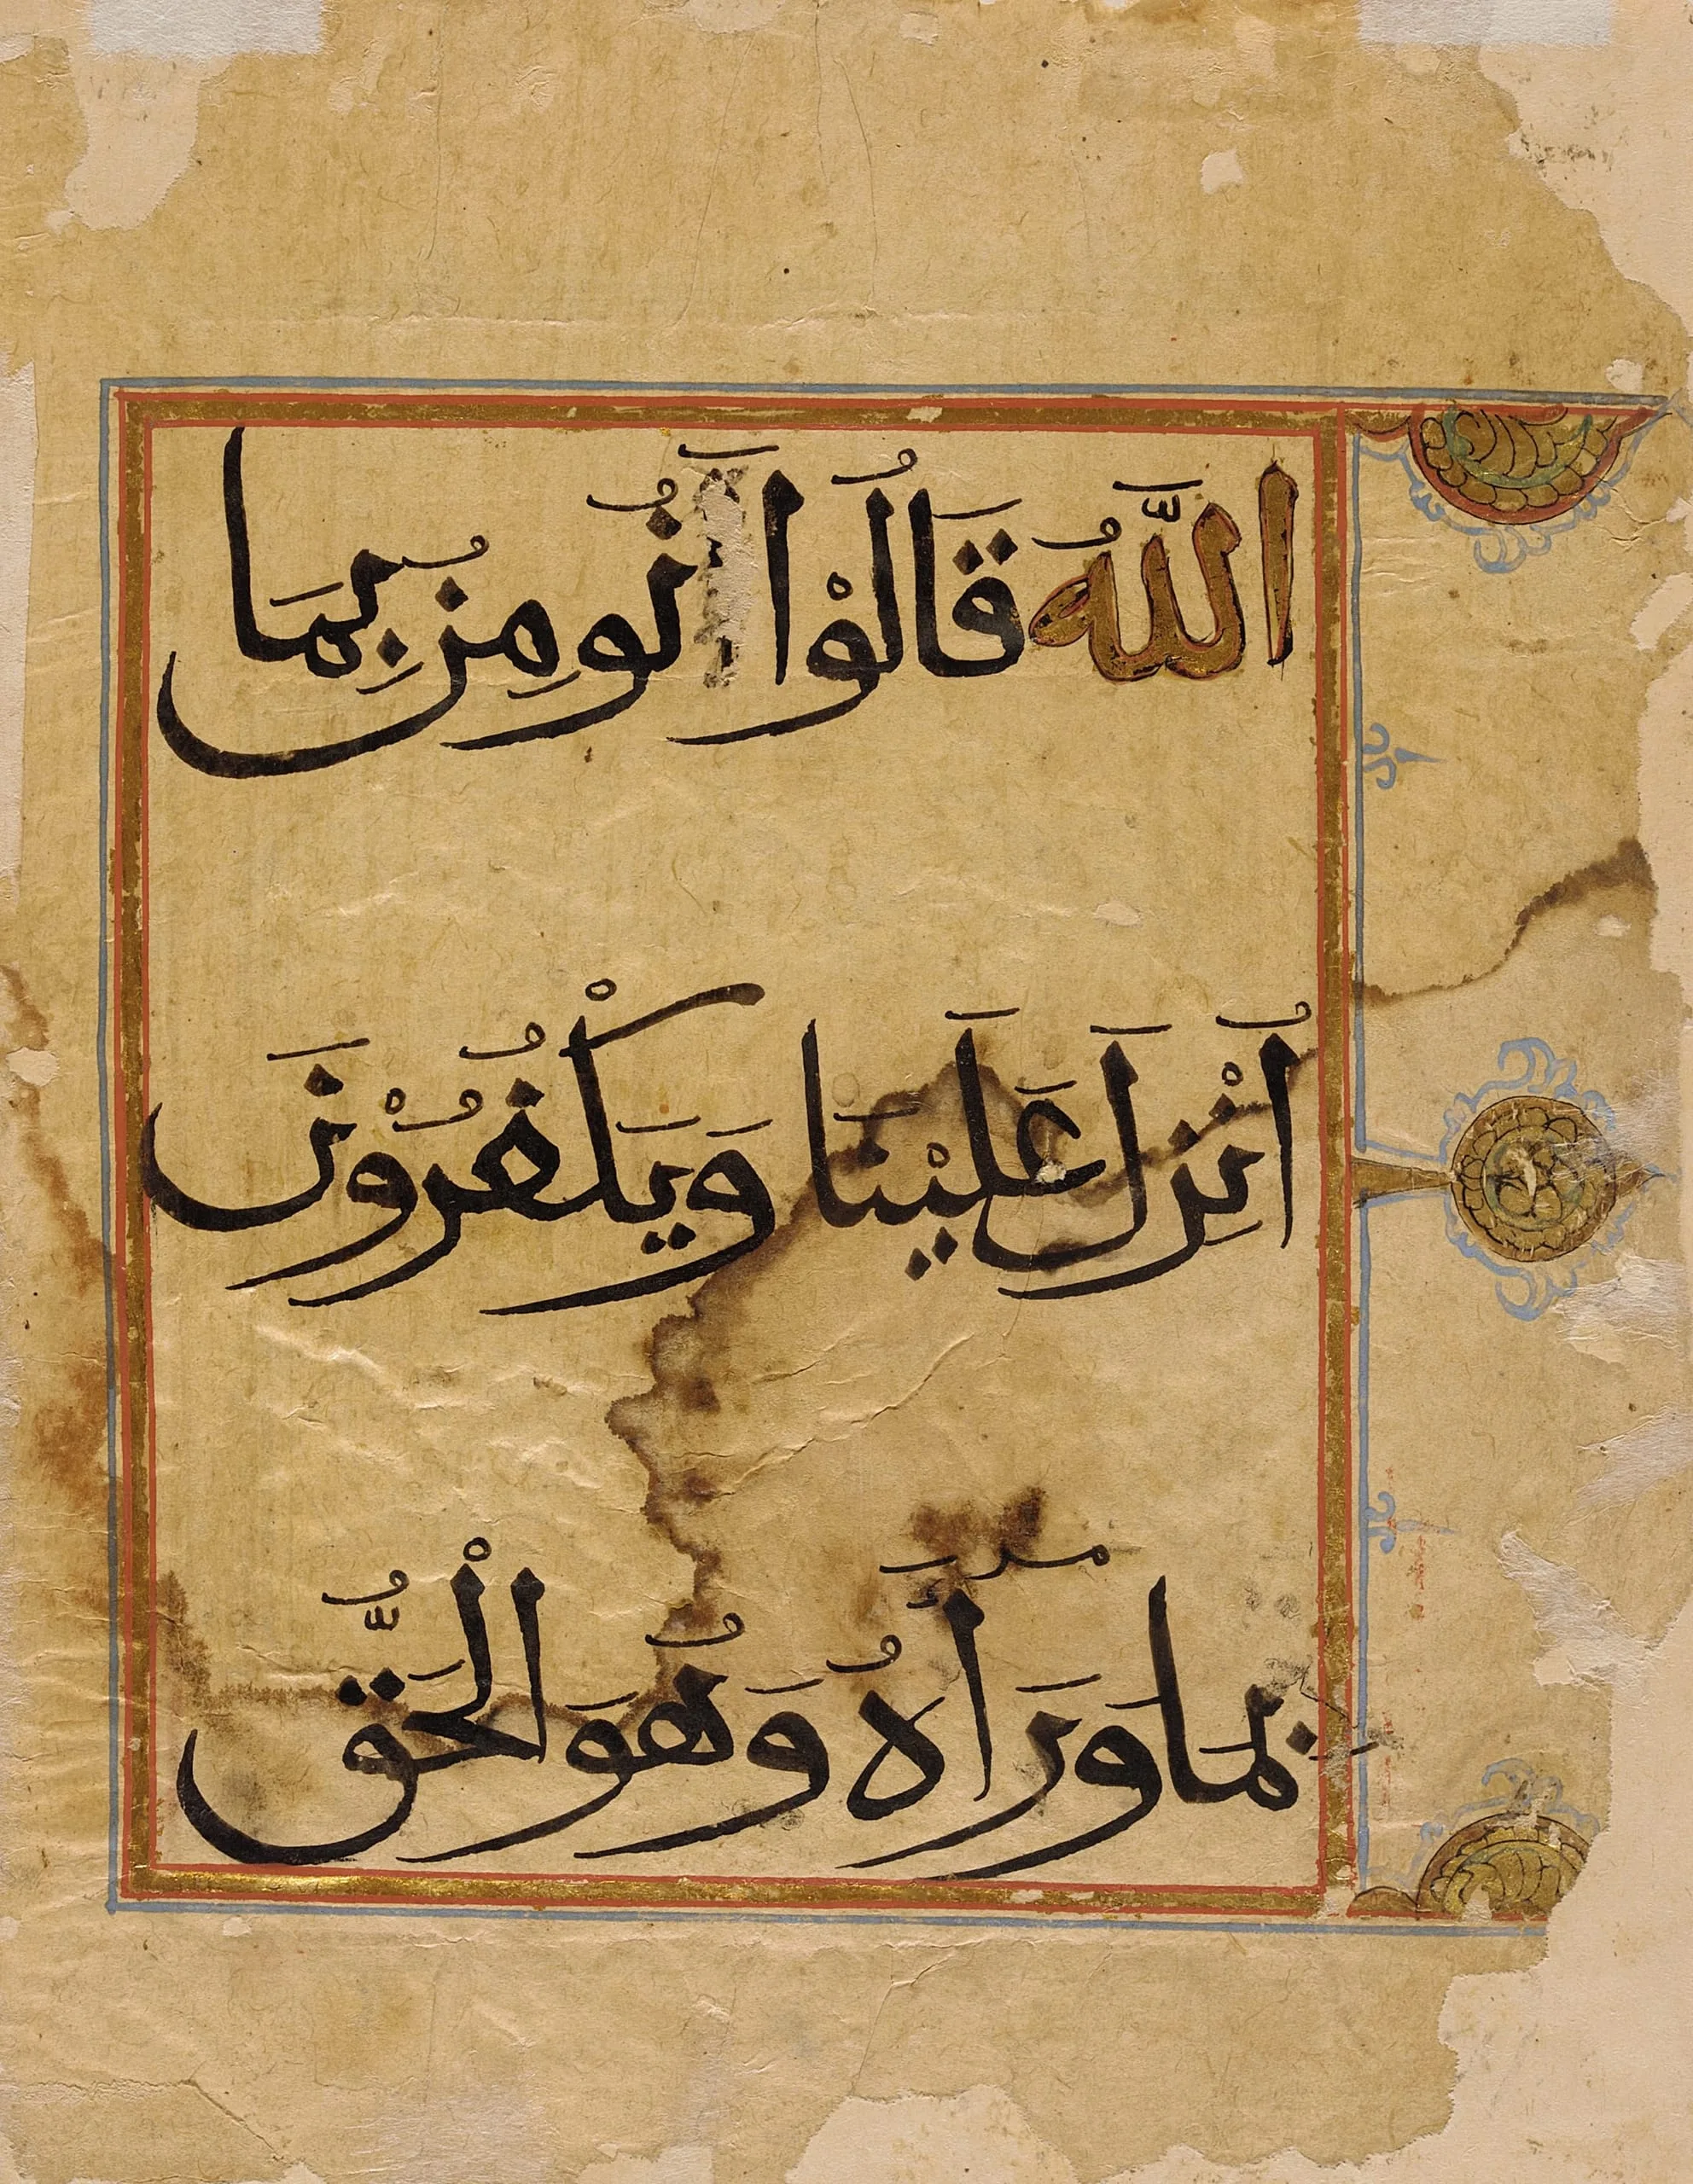 اللَّهُ قَالُوْا نُومِنُ بِمَا
اُنْزِلَ عَلَيْنَا وَيَكْفُرُوْنَ
بِمَا وَرَأَهُ وَهُوَ الْحَقُّ